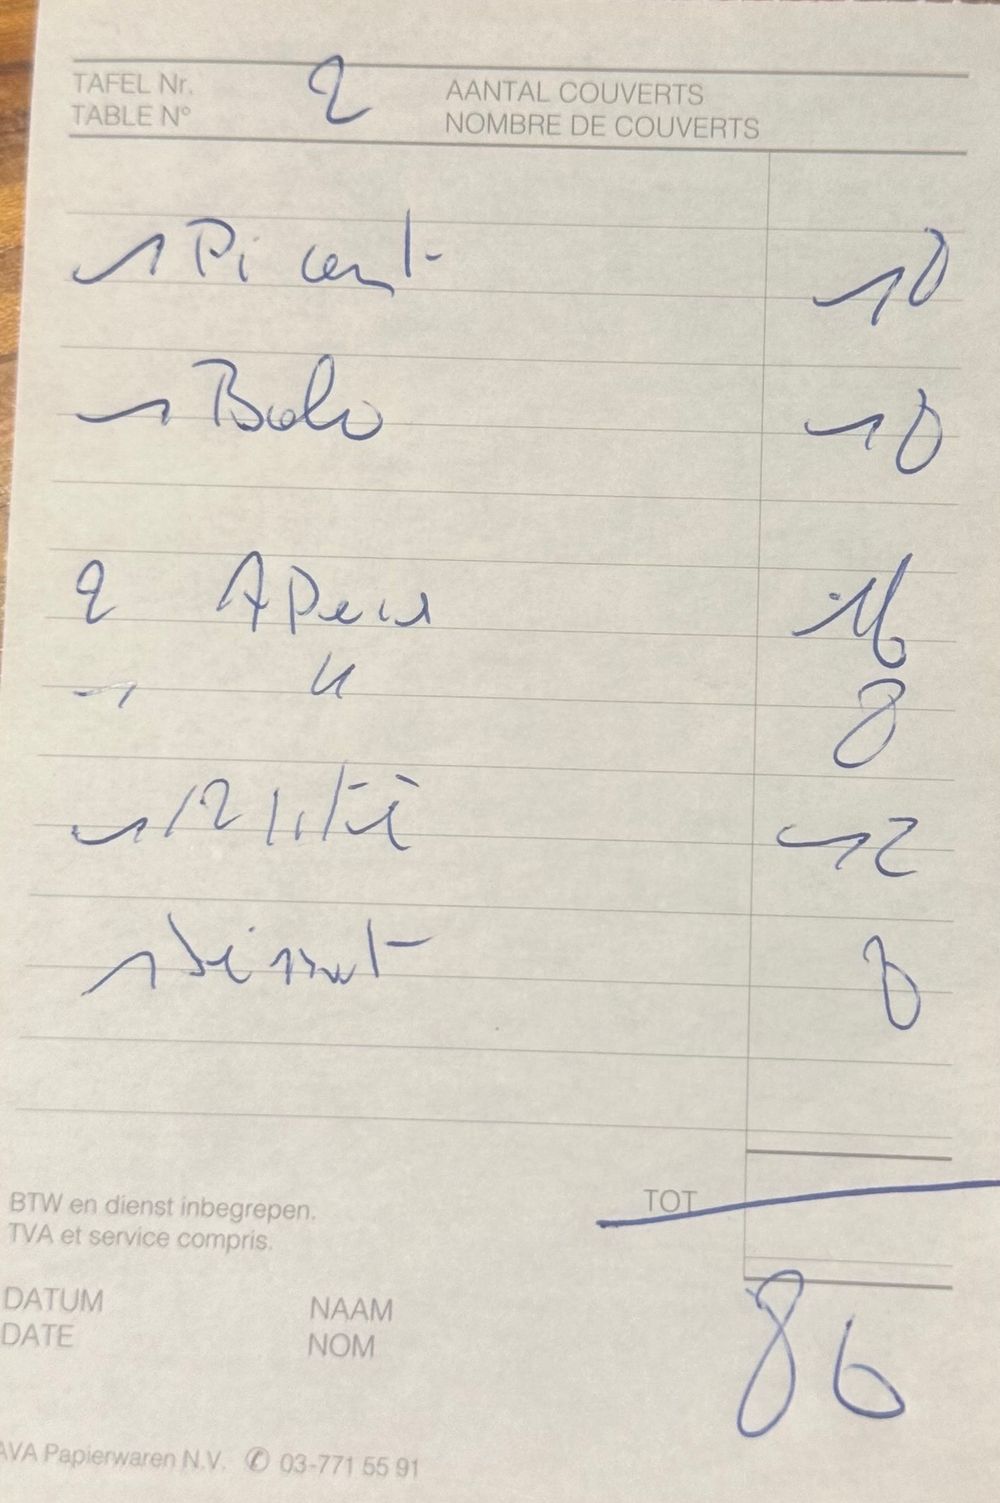 TAFEL Nr. 2 AANTAL COUVERTS
TABLE N° NOMBRE DE COUVERTS
1 Picant 18
1 Bolo 18
2 Apero 16
1 " 8
1 1/2 litre 12
1 dessert 8
BTW en dienst inbegrepen. TOT
TVA et service compris.
86
DATUM NAAM
DATE NOM
AVA Papierwaren N.V. ✆ 03-771 55 91